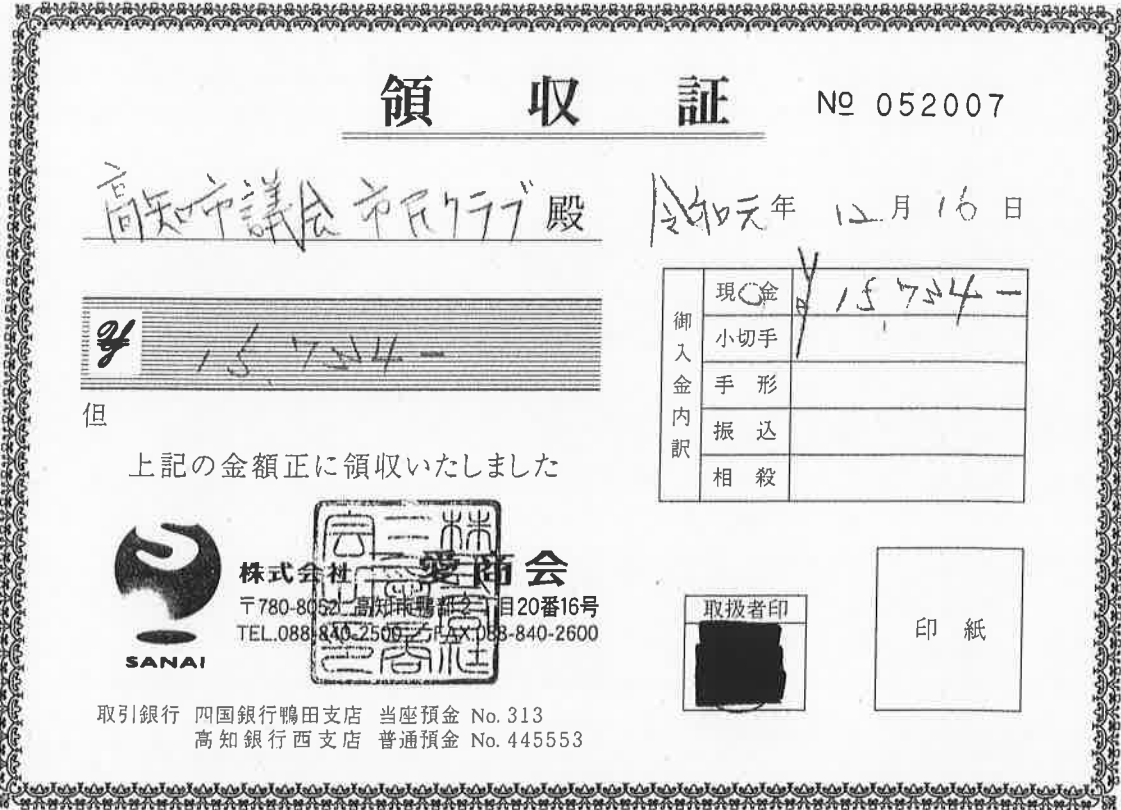 領収証
№ 052007
高知市議会 市民クラブ 殿
令和元年 12月16日
¥ 15,754-
但
上記の金額正に領収いたしました
御入金内訳
現金 ¥15,754-
小切手
手形
振込
相殺
株式会社 三愛商会
〒780-8052 高知市鴨部2丁目20番16号
TEL.088-840-2500 FAX.088-840-2600
SANAI
取扱者印
印紙
取引銀行 四国銀行鴨田支店 当座預金 No.313
高知銀行西支店 普通預金 No.445553